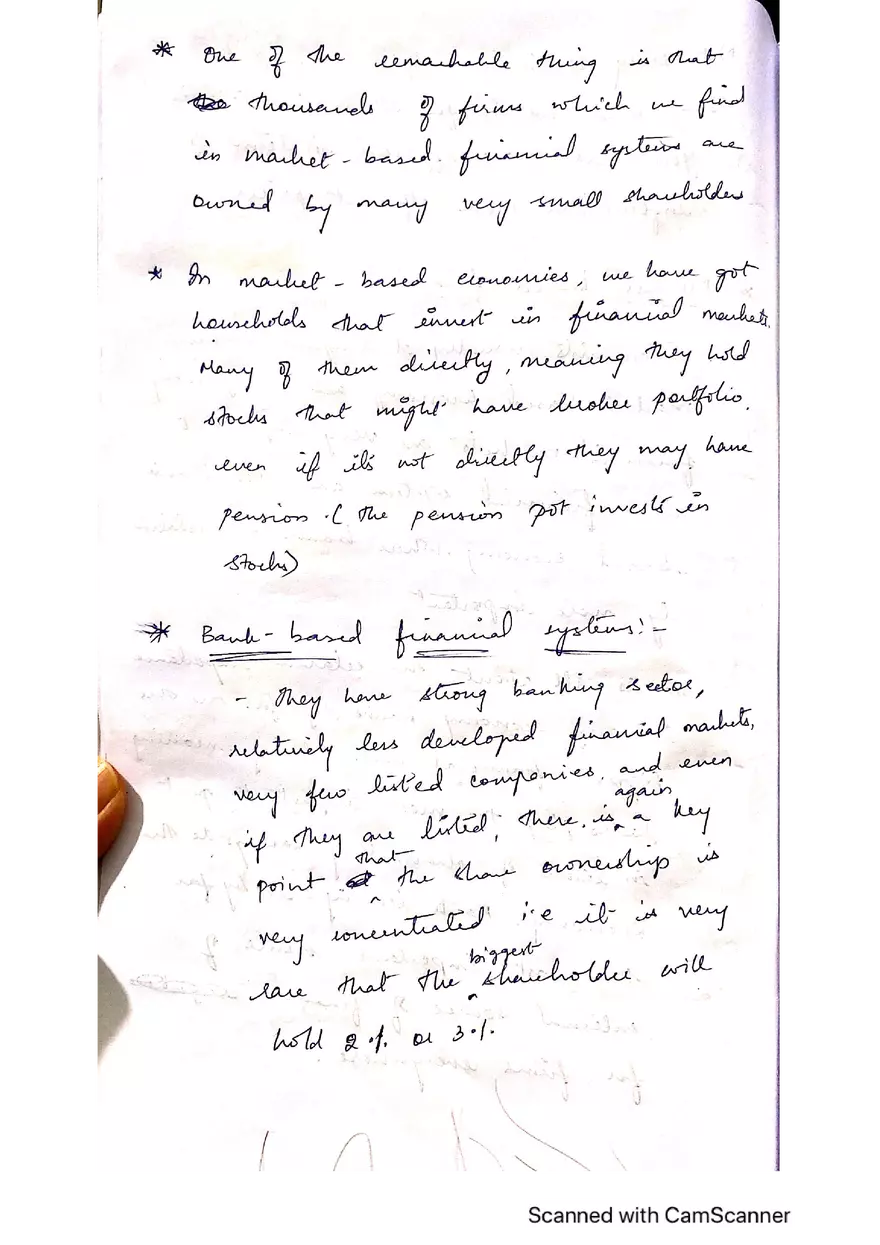 * One of the remarkable thing is that
thousands of firms which we find
in market-based financial systems are
owned by many very small shareholders
* In market-based economies, we have got
households that invest in financial markets.
Many of them directly, meaning they hold
stocks that might have broker portfolio.
even if it's not directly they may have
pension. (the pension pot invests in
stocks)
* Bank-based financial systems:-
- They have strong banking sector,
relatively less developed financial markets,
very few listed companies. and even
if they are listed, there is again a key
point that the share ownership is
very concentrated i.e it is very
rare that the biggest shareholder will
hold 2% or 3%.
Scanned with CamScanner